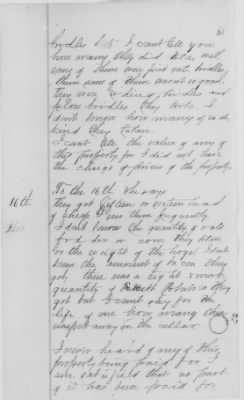 61
bridles but I cant tell you
how many they did take, not
any of them were first rate bridles,
there any of them wasnt so good.
They were riding bridles and
plow bridles they took. I
dont know how many of each
kind they taken.
I cant tell the value of any of
this property for I did not have
the charge of prices of the property
16th
To the 16th he says
they got fifteen or sixteen head
of sheep I saw them frequently.
I dont know the quantity of oats
fodder or corn they taken
or the weight of the hogs. I dont
know the amount of bacon they
got, there was a right smart
quantity of Potatoes they
got but I cant say for the
life of me how many they
away in the cellar
I never heard of any of this
property being paid for I
am satisfied that no part
of it has been paid for